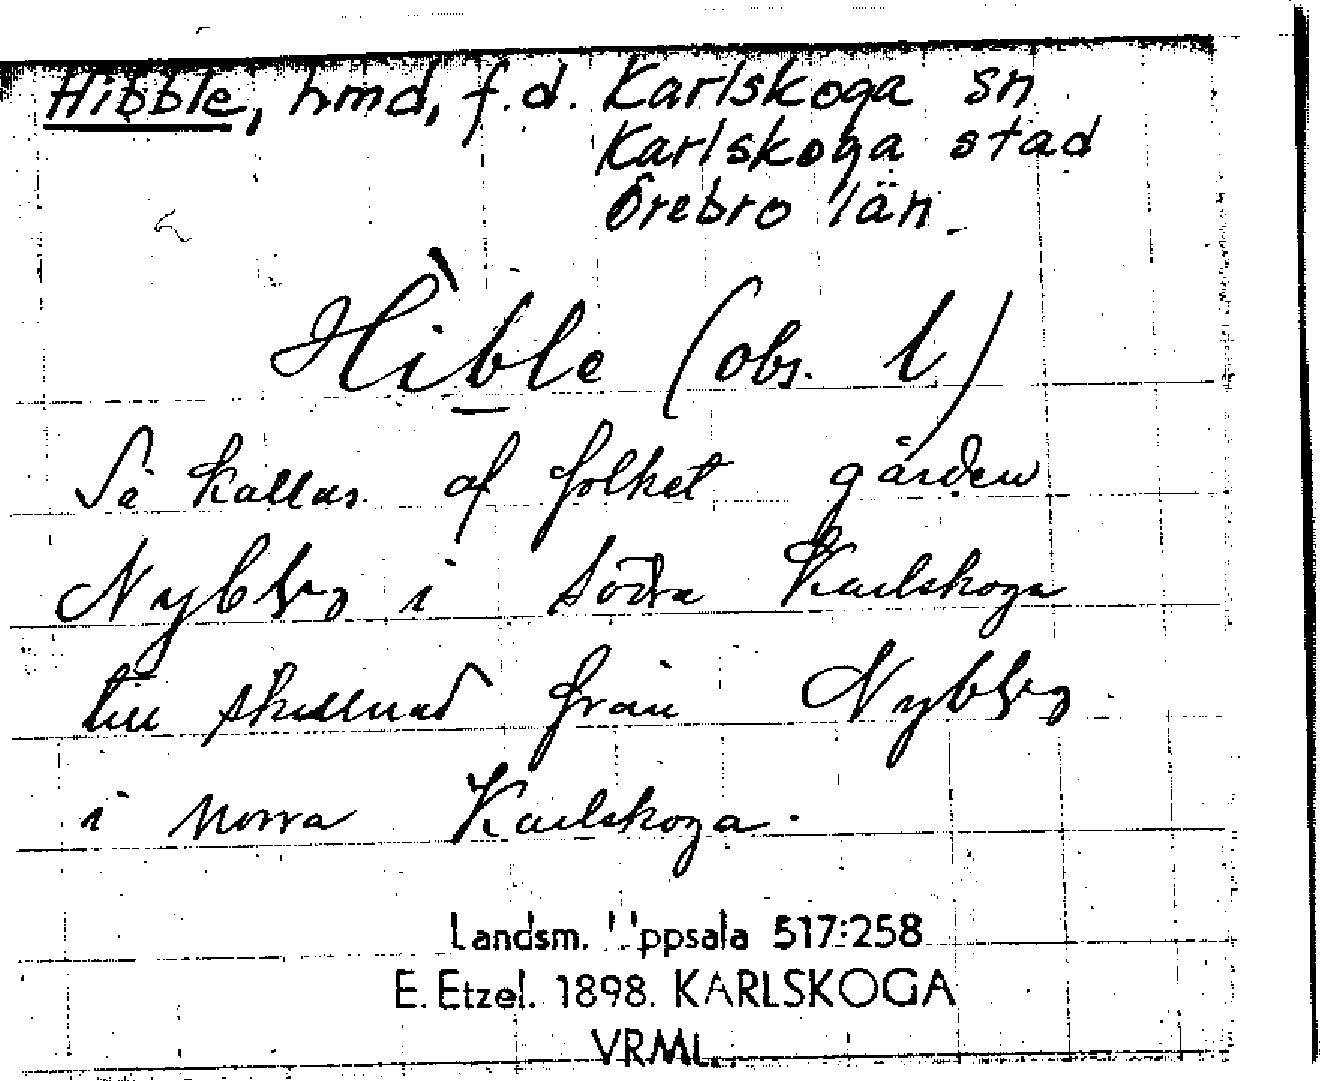 Hibble, hmd, f.d. Karlskoga sn
Karlskoga stad
Örebro län.
Hìble (obs. l)
Så kallas af folket gården
Nybble i södra Karlskoga
till skillnad från Nybble
i norra Karlskoga.
Landsm. Uppsala 517:258
E. Etzel. 1898. KARLSKOGA
VRML.